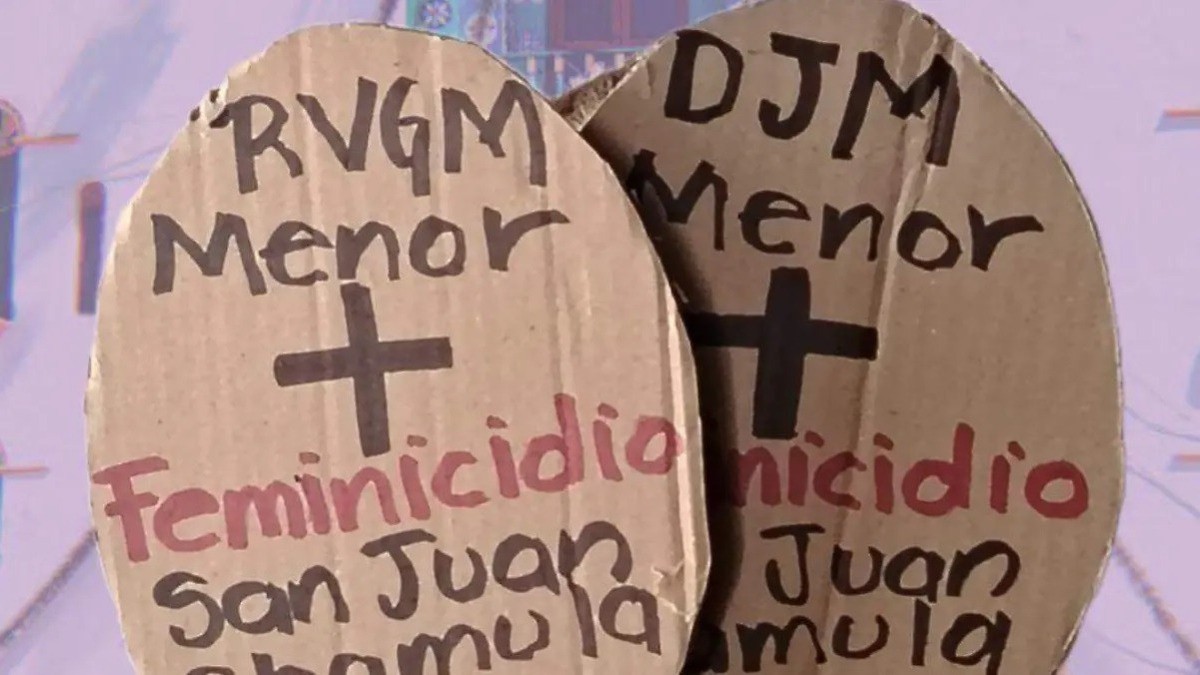 RVGM
Menor
Feminicidio
San Juan
chamula
DJM
Menor
nicidio
Juan
amula